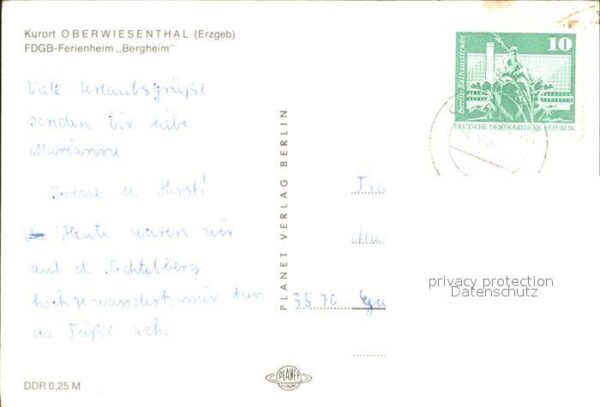 Kurort OBERWIESENTHAL (Erzgeb)
FDGB-Ferienheim „Bergheim"
Viele Urlaubsgrüße
senden Dir liebe
Marianne
Irene u. Horst!
Heute waren wir
auf d. Fichtelberg
hochgewandert, mir tun
die Füße weh.
DDR 0,25 M
PLANET VERLAG BERLIN
PLANET
10
Berlin-Rathausstraße
DEUTSCHE DEMOKRATISCHE REPUBLIK
3570
privacy protection
Datenschutz